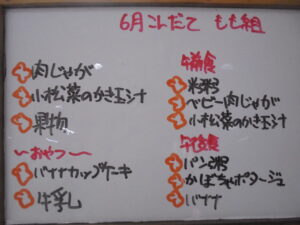 6月こんだて もも組
肉じゃが
小松菜のかき玉汁
果物
〜おやつ〜
バナナカップケーキ
牛乳
午前食
米粥
ベビー肉じゃが
小松菜のかき玉汁
午後食
パン粥
かぼちゃポタージュ
バナナ